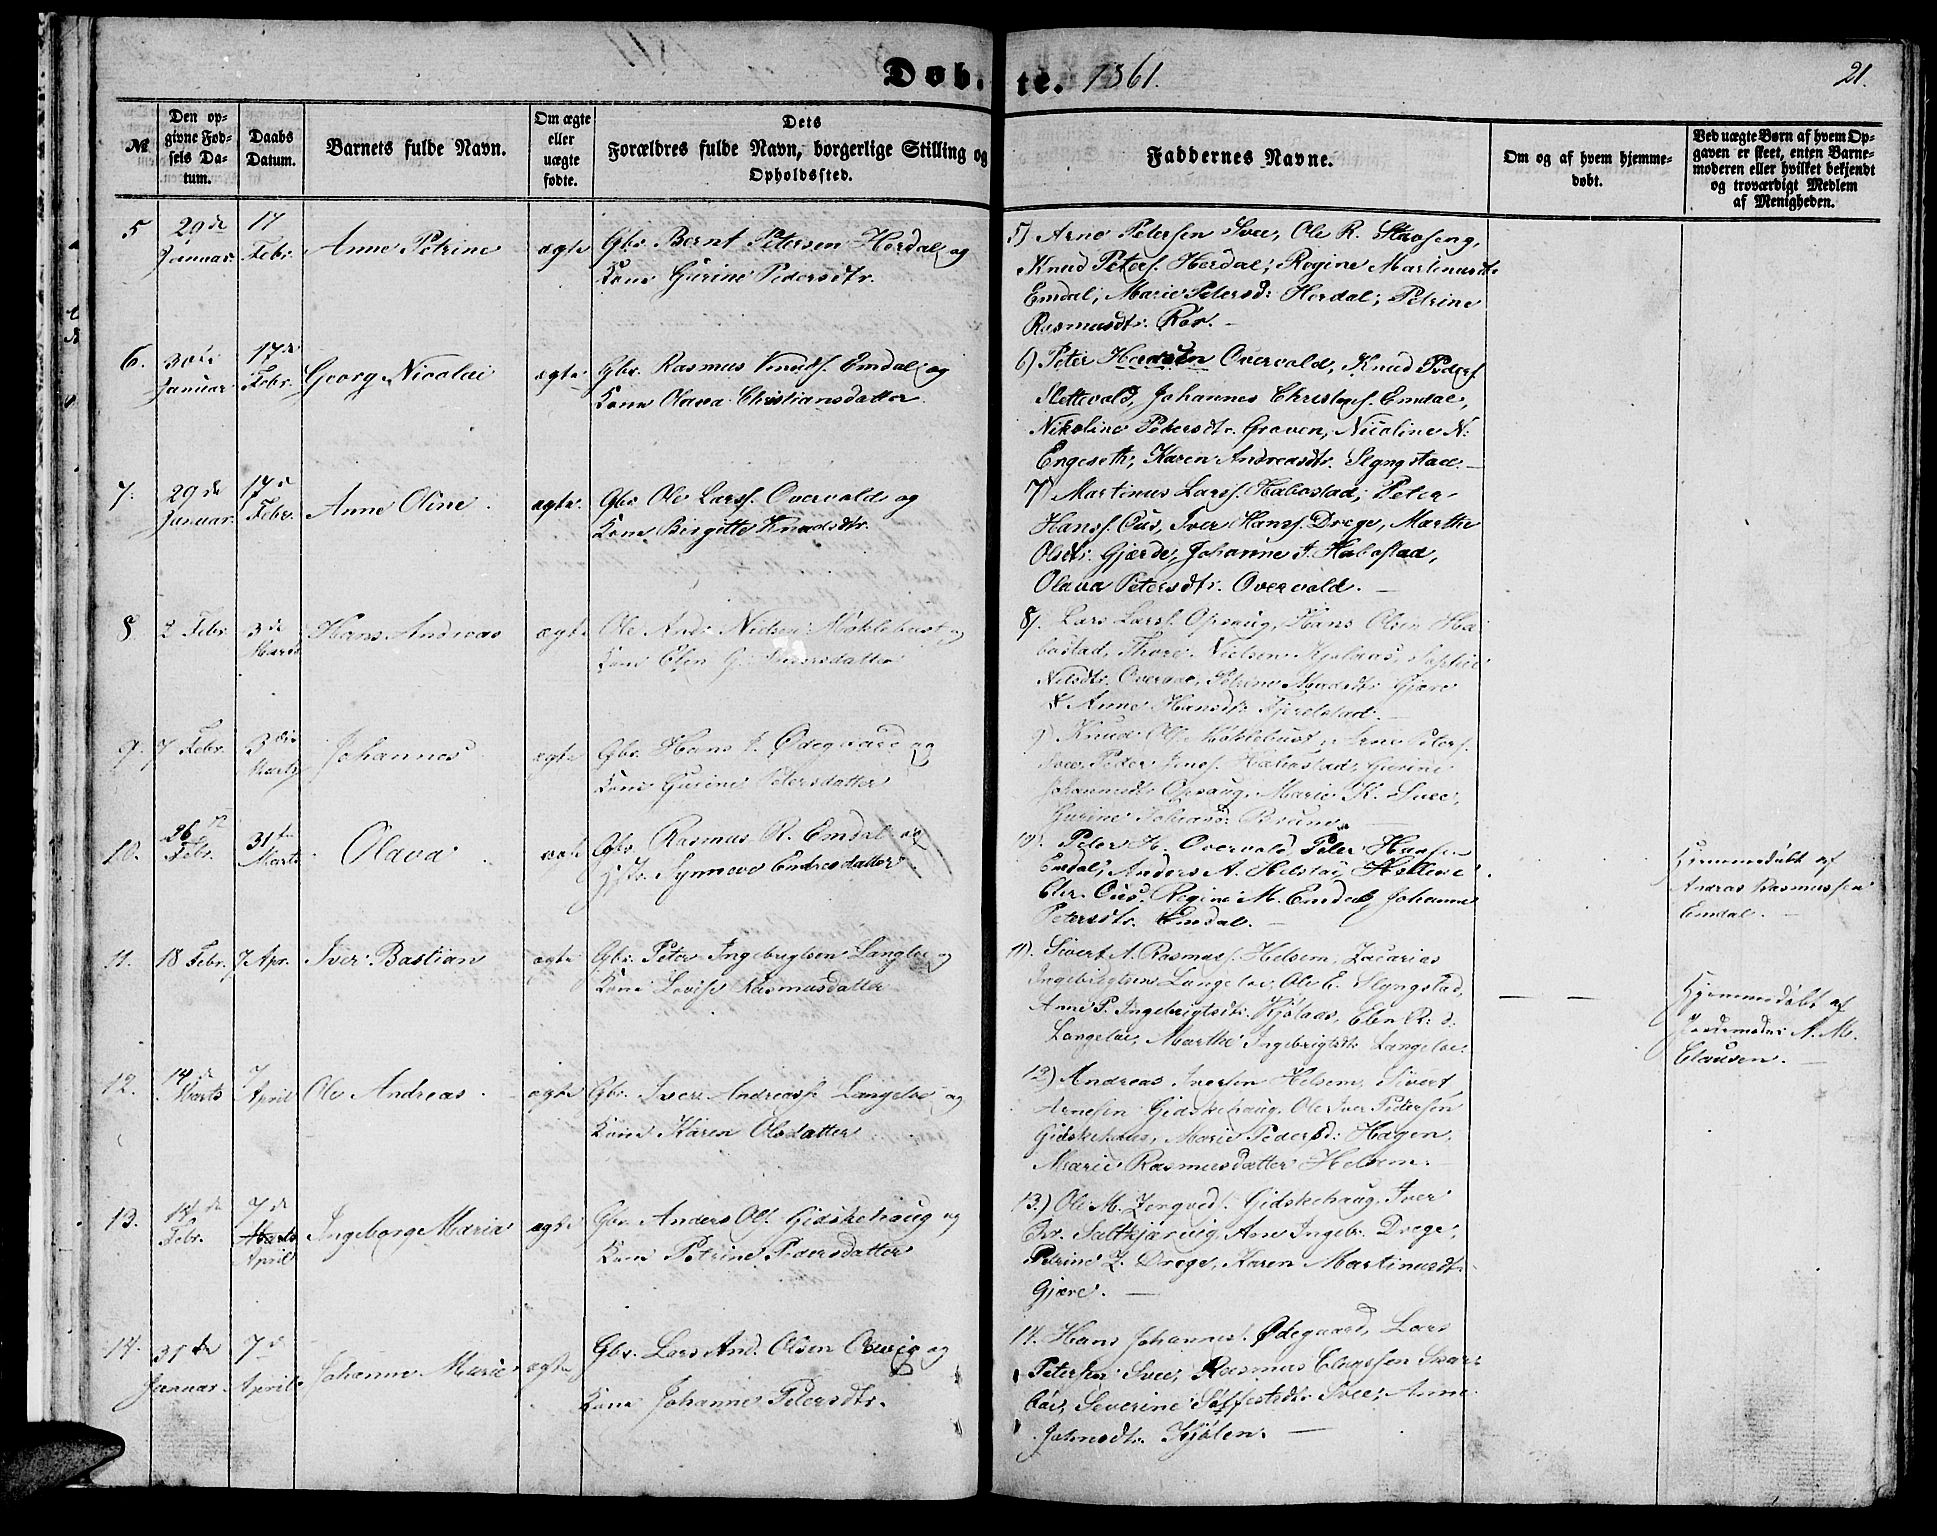 Døb.
te. 1861.
21.
№
Den op-
givne Fød-
sels Da-
tum.
Daabs
Datum.
Barnets fulde Navn.
Om ægte
eller
uægte
fødte.
Dets
Forældres fulde Navn, borgerlige Stilling og
Opholdssted.
Faddernes Navne.
Om og af hvem hjemme-
døbt.
Ved uægte Børn af hvem Op-
gaven er skeet, enten Barne-
moderen eller hvilket bekjendt
og troværdigt Medlem
af Menigheden.
5
29de
Januar.
17
Febr.
Anne Petrine
ægte
Gbr. Bernt Petersen Herdal og
Kone Gurine Pedersdtr.
5) Arne Petersen Svee, Ole R. Stavseng,
Knud Peters. Herdal; Regine Martinusdt.
Emdal; Marie Petersd: Herdal; Petrine
Rasmusdtr. Rør.
6.
30te
Januar
17de
Febr.
Georg Nicolai
ægte
Gbr. Rasmus Knuds. Emdal og
Kone Olava Christiansdatter.
6) Peter Overvold, Knud Peders.
Slettevold, Johannes Emdal,
Nikoline Petersdtr. Graven, Nicoline N.
Engeseth; Karen Andreasdtr. Slyngstad.
7.
29de
Januar.
17d
Febr.
Anne Oline.
ægte.
Gbr. Ole Larss. Overvold og
Kone Birgitte Knudsdtr.
7) Martinus Larss. Habostad; Peter
Hanss. Ous, Iver Hanss. Drege, Marthe
Olsdt: Gjærde, Johanne J. Habostad,
Olava Petersdtr. Overvold.
8
2 Febr.
3de
Marts
Hans Andreas
ægte
Ole And. Nielsen Møklebust og
Kone Elen
8). Lars Larss. Opsaug, Hans Olsen Ha-
bostad, Thore Nielsen Kjølaas, Sophie
Nilsdtr. Petrine Gjære
& Anne Hansdt. Fjærelstad.
9.
7 Febr.
3die
Marts
Johannes
ægte
Gbr. Hans J. Ødegaard og
Kone Gurine Petersdatter
9) Knud Ols. Møklebust, Arne Peters.
Svee, Peder Jens. Habostad, Gurine
Johannesdt. Opsaug, Marie K. Svee,
Gurine Bruna
10.
26de
Febr.
31te
Marts
Olava
ægte
Gbr. Rasmus R. Emdal og
Hstr. Synneve Endresdatter
10. Peter H. Overvold, Peter Hansen
Emdal; Anders A. Helstad,
Ous, Regine M. Emdal, Johanne
Petersdtr. Emdal.
Hjemmedøbt af
Andreas Rasmussen
Emdal.
11.
18 Febr.
7 Apr.
Iver Bastian
ægte
Gbr. Peter Ingebrigtsen Langloe og
Kone Lovise Rasmusdatter
11). Sivert A. Rasmuss. Helsem, Zacarias
Ingebrigtsen Langeloe, Ole E. Slyngstad,
Anne P. Ingebrigtsdtr. Kjølaas, Elen R. d.
Langeloe, Marthe Ingebrigtsdt. Langeloe.
Hjemmedøbt af
Jordemoder A. M.
Clausen.
12.
14de
Marts
7
April
Ole Andreas.
ægte
Gbr. Iver Andreass. Langeloe og
Kone Karen Olsdatter
12) Andreas Iversen Helsem, Sivert
Arnesen Gidskehaug, Ole Iver Pedersen
Gidskehaug, Marie Pedersd: Hagen,
Marie Rasmusdatter Helsem.
13.
14de
Febr.
7de
Marts
April
Ingeborg Maria
ægte
Gbr. Anders Ols. Gidskehaug og
Kone Petrine Pedersdatter
13.) Ole M. Gidskehaug, Iver
Chr. Saltkjærvig, Arne Ingebr. Drege,
Petrine Z. Drege, Karen Martinusdt.
Gjære.
14.
31te
Januar.
7d
April
Johanne Marie
ægte
Gbr. Lars And. Olsen Overvig og
Kone Johanne Petersdtr.
14. Hans Johannes. Ødegaard, Lars
Petersen Svee, Rasmus
Severine Svee, Anne
Kjølen.